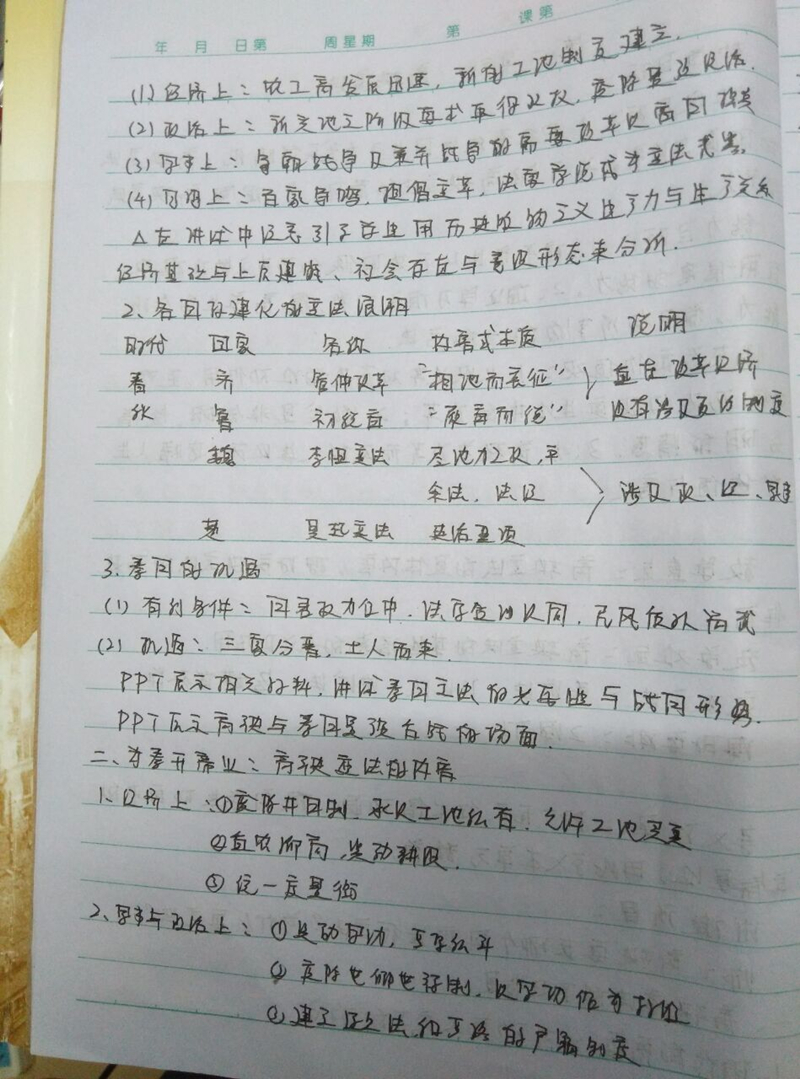 年 月 日第 周星期 第 课第
(1) 经济上：农工商发展迅速，新的土地制度建立.
(2) 政治上：新兴地主阶级要求取得政权，废除旧政治.
(3) 军事上：争霸战争及兼并战争的需要改革以富国强兵
(4) 思想上：百家争鸣，提倡变革，法家学说成为变法先导.
△在讲述中注意引学生用历史唯物主义生产力与生产关系
经济基础与上层建筑、社会存在与意识形态来分析.
2、各国封建化的变法浪潮
时代 国家 名称 内容或本质 说明
春 齐 管仲改革 "相地而衰征" 旨在改革经济
秋 鲁 初税亩 "履亩而税" 没有涉及政治制度
魏 李悝变法 尽地力之教，平
籴法，法经 涉及政、经、军事
楚 吴起变法
3、秦国的机遇
(1) 有利条件：国君权力集中，法家学说认同，民风质朴尚武
(2) 机遇：三家分晋，士人西来.
PPT展示相关材料，讲述秦国变法的必要性与战国形势.
PPT展示商鞅与秦国君 的场面.
二、为秦开帝业：商鞅变法的内容
1、经济上：①废除井田制，承认土地私有，允许土地买卖
②重农抑商，奖励耕织
③统一度量衡
2、军事与政治上：①奖励军功，严禁私斗
② 废除世卿世禄制，以军功作为
③建立 法和 的户籍制度